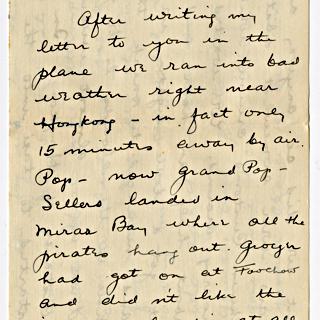 After writing my
letter to you in the
plane we ran into bad
weather right near
Hongkong - in fact only
15 minutes away by air.
Pop - now Grand Pop -
Sellers landed in
Miras Bay where all the
pirates hang out. Groger
had got on at Foochow
and didn't like the